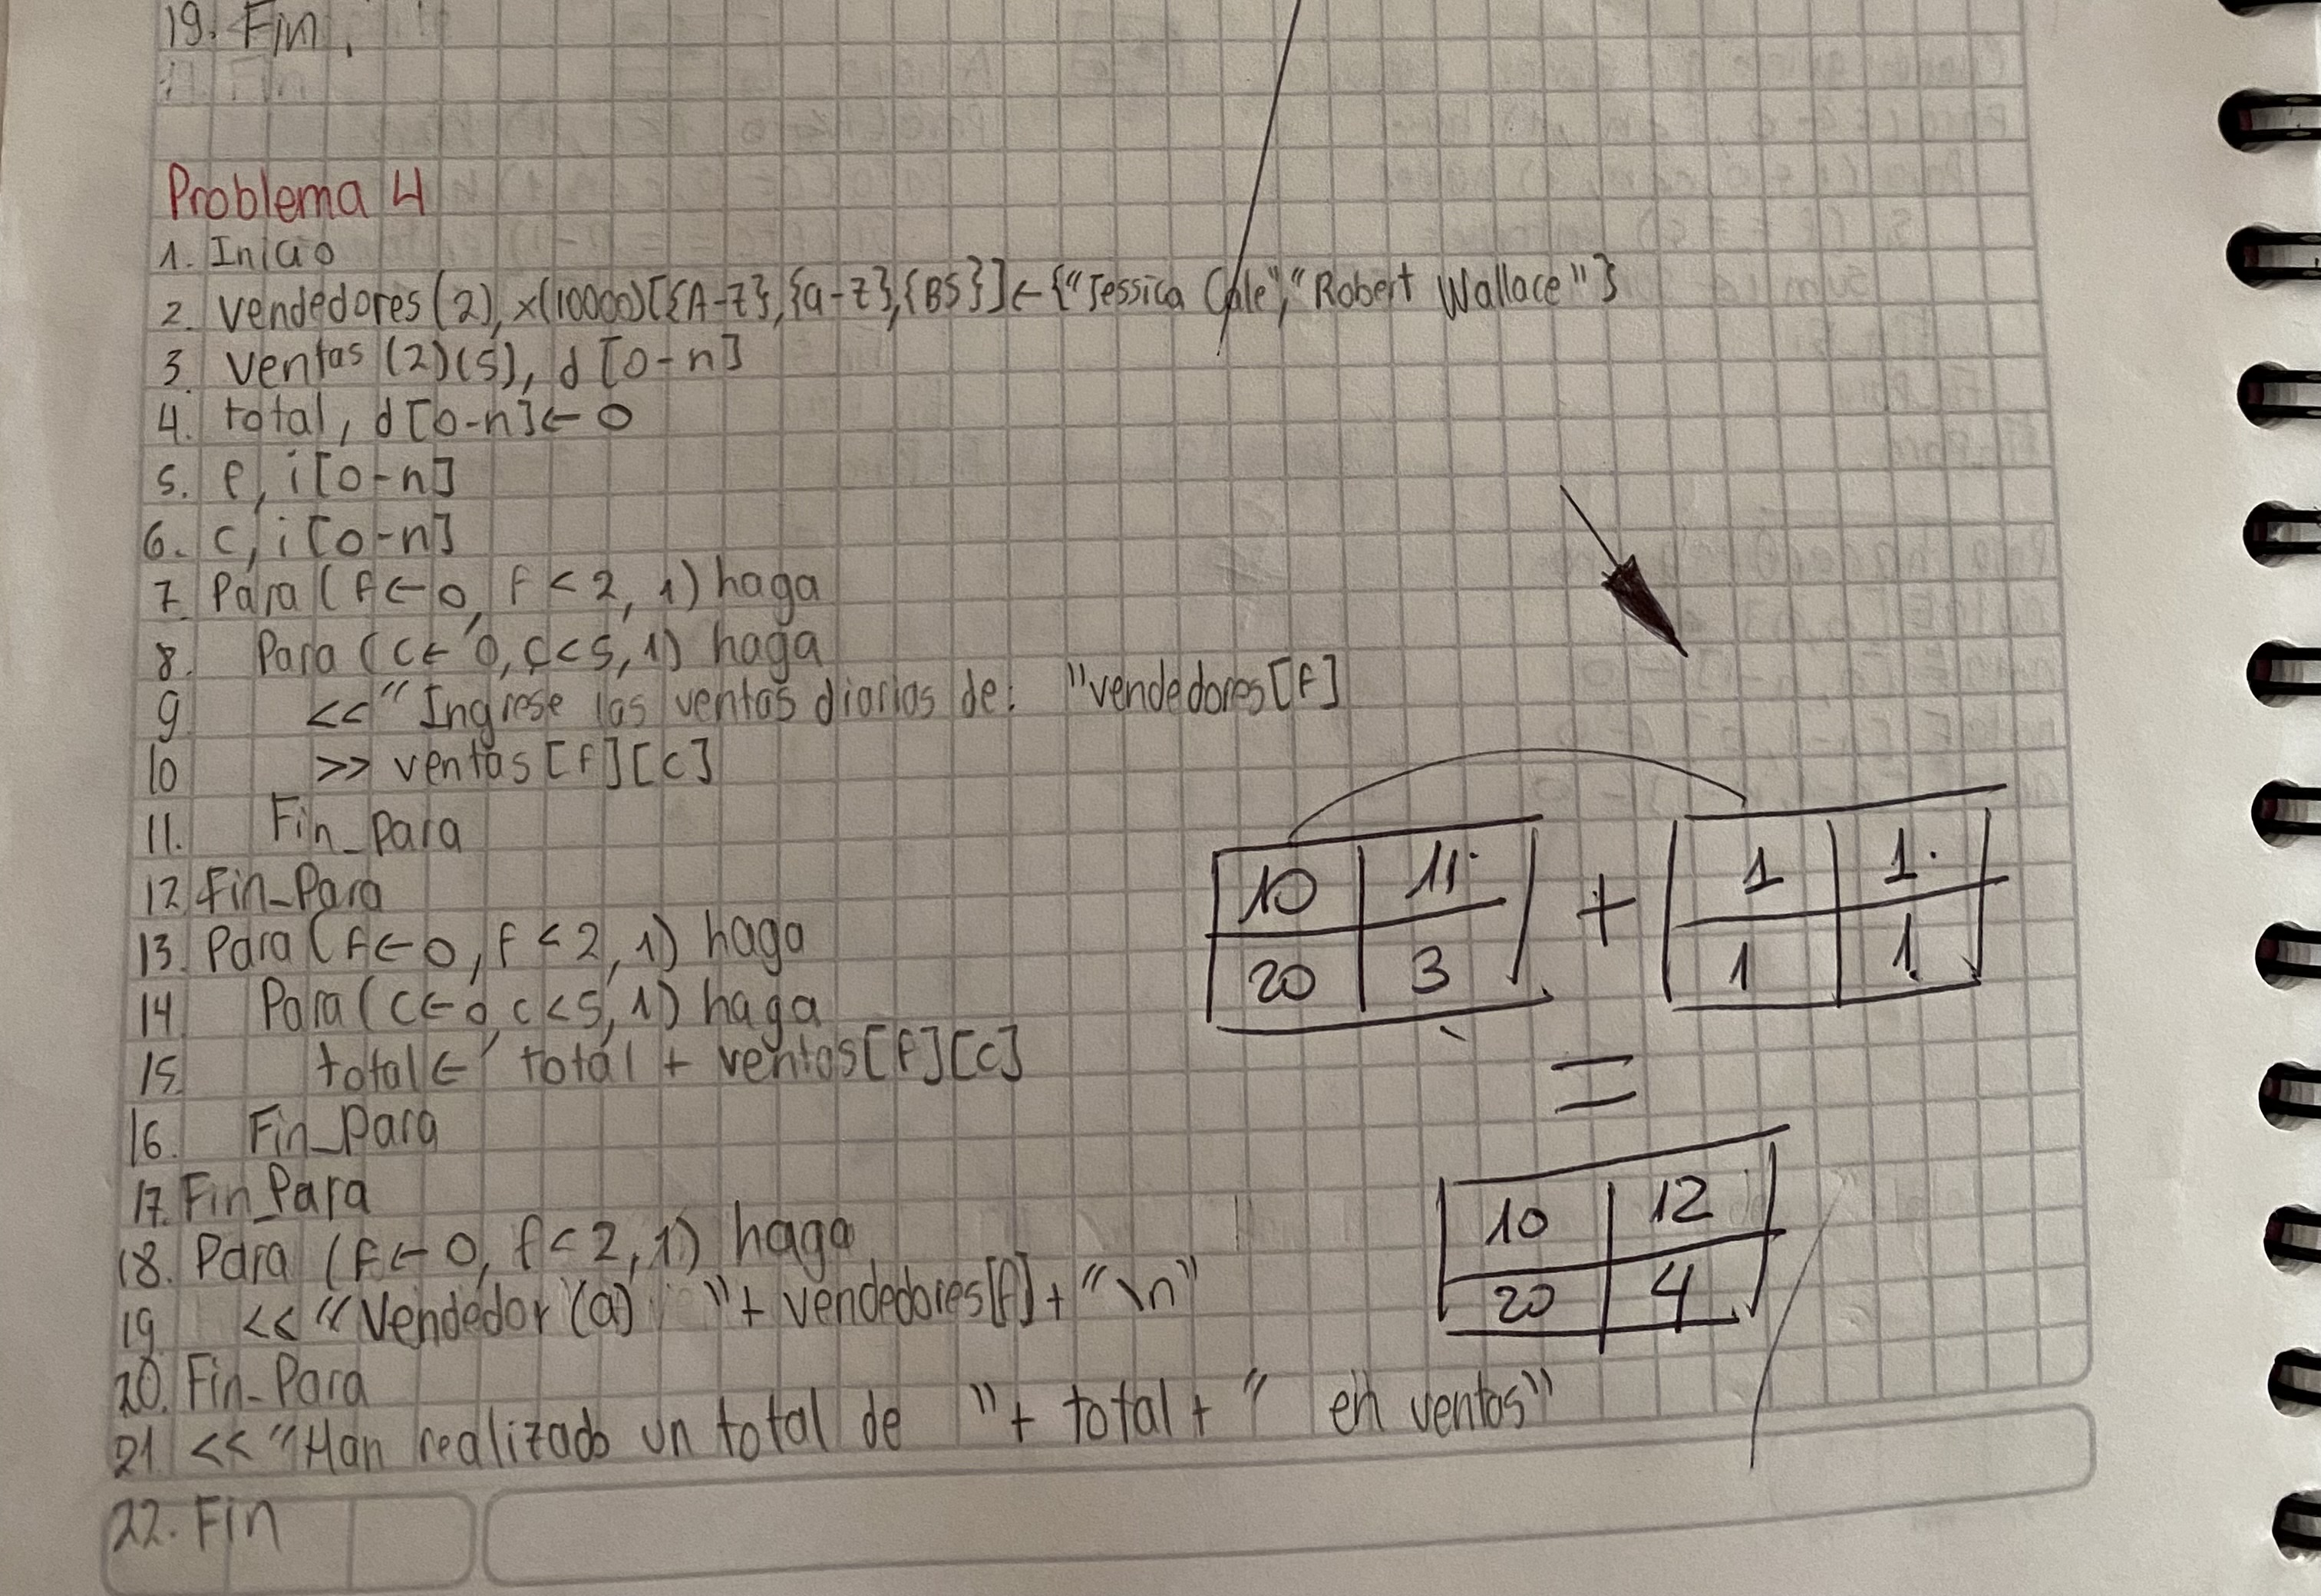 19. Fin.
Problema 4
1. Inicio
2. vendedores (2), x(10000)[{A-Z},{a-z},{BS}]← {"Jessica Cale","Robert Wallace"}
3. ventas (2)(5), d [0-n]
4. total, d[0-n]← 0
5. f, i[0-n]
6. c, i[0-n]
7. Para (f←0, f<2, 1) haga
8. Para (c← 0, c<5, 1) haga
9 << "Ingrese las ventas diarias de: "vendedores[f]
10 >> ventas [f][c]
11. Fin_para
12 Fin_Para
13. Para (f←0, f<2, 1) haga
14 Para (c←0, c<5, 1) haga
15. total← total + ventas[f][c]
16. Fin_para
17. Fin_Para
18. Para (f←0, f<2, 1) haga
19 << "Vendedor (a) "+ vendedores[f] + "\n"
20. Fin_Para
21 << "Han realizado un total de "+ total + " en ventas"
22. Fin
10 11 + 1 1
20 3 1 1
=
10 12
20 4